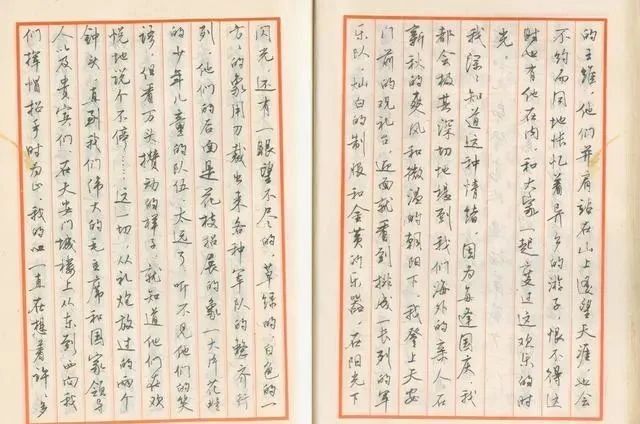 的王维，他们并肩站在山上遥望天涯，也会
不约而同地怅忆着异乡的游子，恨不得这
时也有他在内，和大家一起度过这欢乐的时
光。
我深深知道这种情绪，因为每逢国庆，我
都会极其深切地想到我们海外的亲人。在
新秋的爽风和微温的朝阳下，我登上天安
门前的观礼台，迎面就看到排成一长列的军
乐队，灿白的制服和金黄的乐器，在阳光下
闪光，还有一眼望不尽的，草绿的，白色的一
方方的象用刀裁出来各种军队的整齐行
列，他们的后面是花枝招展的象一大片花畦
的少年儿童的队伍，太远了，听不见他们的笑
语，但看万头攒动的样子，就知道他们在欢
悦地说个不停……这一切，从礼炮放过的两个
钟头，直到我们伟大的毛主席和国家领导
人以及贵宾们，在天安门城楼上从东到西向我
们挥帽招手时为止，我的心一直在想着许多